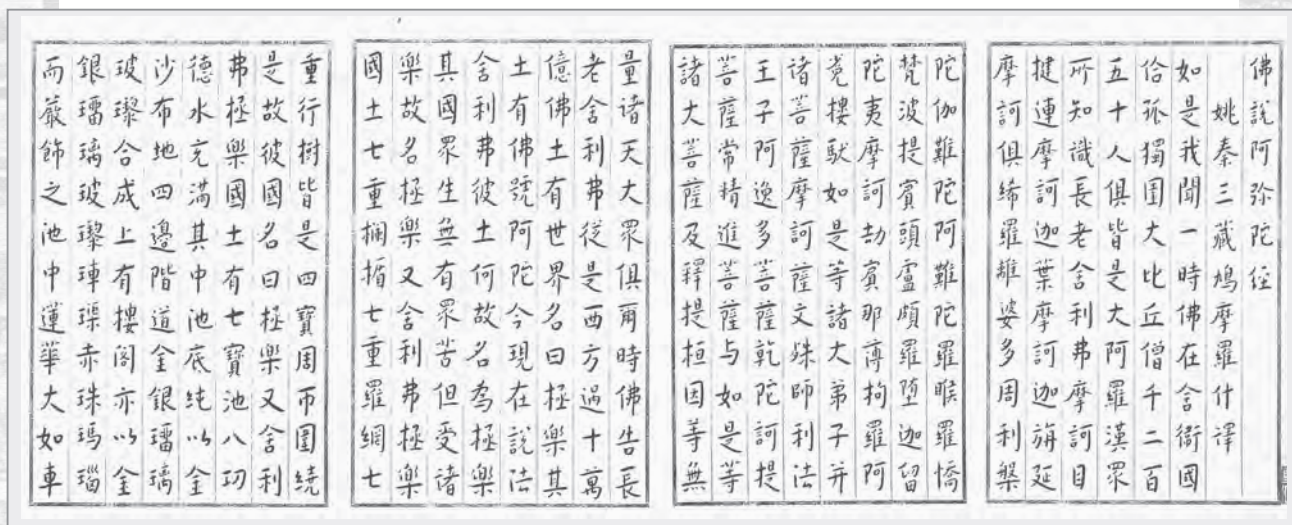 佛說阿弥陀经
姚秦三藏鳩摩羅什译
如是我聞一時佛在舍衛國
佮孤獨园大比丘僧千二百
五十人俱皆是大阿羅漢眾
所知識長老舍利弗摩訶目
揵連摩訶迦葉摩訶迦旃延
摩訶俱絺羅離婆多周利槃
陀伽難陀阿難陀羅睺羅憍
梵波提賓頭盧頗羅堕迦留
陀夷摩訶劫賓那薄拘羅阿
㝹樓馱如是等諸大弟子并
诸菩薩摩訶薩文殊師利法
王子阿逸多菩薩乾陀訶提
菩薩常精進菩薩与如是等
諸大菩薩及釋提桓因等無
量诸天大眾俱爾時佛告長
老舍利弗從是西方過十萬
億佛土有世界名曰極樂其
土有佛號阿陀今現在說法
舍利弗彼土何故名為極樂
其國眾生無有眾苦但受诸
樂故名極樂又舍利弗極樂
國土七重欄楯七重羅網七
重行樹皆是四寶周帀圍繞
是故彼國名曰極樂又舍利
弗極樂國土有七寶池八功
德水充滿其中池底纯以金
沙布地四邊階道金銀瑠璃
玻瓈合成上有樓阁亦以金
銀瑠璃玻瓈硨磲赤珠瑪瑙
而嚴飾之池中蓮華大如車